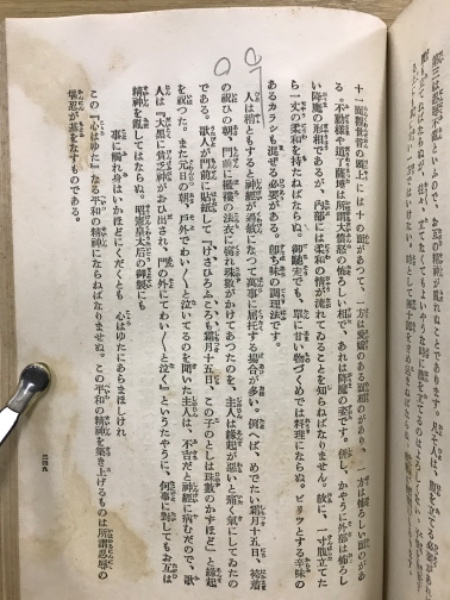 十一面觀世音の頭上には十の面があつて、一方は愛嬌のある面相のがあり、一方は怖ろしい面のがあ
る。不動樣や道了薩埵は所謂大憤怒の怖ろしい相で、あれは降魔の姿です。併し、かやうに外部は怖ろし
い降魔の形相であるが、内部には柔和の情が流れてゐることを知らねばなりません。故に、一寸腹立てた
ら一丈の柔和を持たねばならぬ。御馳走でも、單に甘い物づくめでは料理にならぬ。ピリツとする辛味の
あるカラシも混ぜる必要がある。卽ち味の調理法です。
人は稍ともすると神經が過敏になつて萬事に屈托する場合が多い。例へば、めでたい霜月十五日、袴着
の祝ひの朝、門前に襤褸の法衣に破れ珠數がかけてあつたのを、主人は緣起が惡いと痛く氣にしてゐたの
である。歌人が門前に貼紙して『けさひろふころも霜月十五日、この子のとしは珠數のかずほど』と緣起
を祝つた。また元日の朝、戶外でわい〳〵と泣いてるのを聞いた主人は、不吉だと神經に病むだので、歌
人は『大黑に貧乏神がおひ出され、門の外にてわい〳〵と泣く』というたやうに、何事に對してもお互は
精神を亂してはならぬ。昭憲皇太后の御製にも
事に觸れ身はいかほどにくだくとも　心はゆたにあらまほしけれ
この『心はゆた』なる平和の精神にならねばなりませぬ。この平和の精神を築き上げるものは所謂忍辱の
堪忍が基をなすものである。
二四九